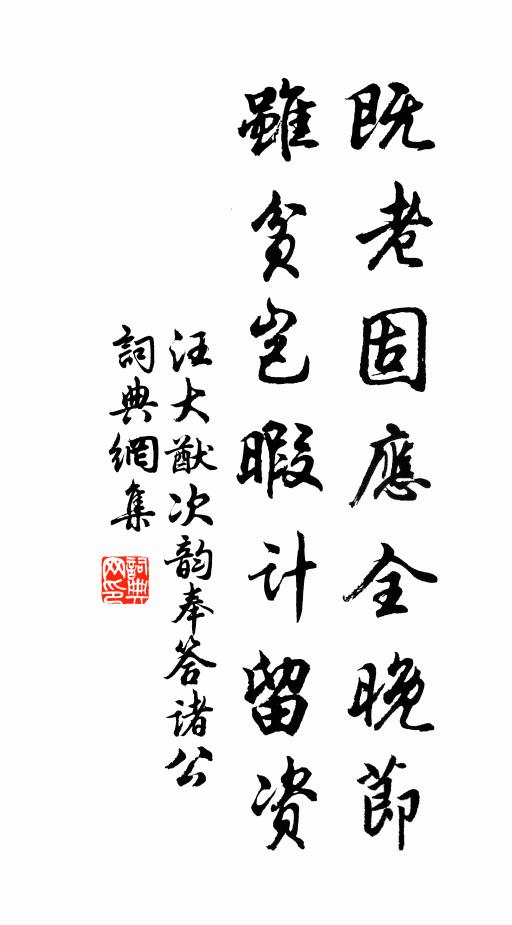 既老固應全晚節
雖貧豈暇計留資
汪大猷次韵奉答諸公
詞典網集
詞典网印